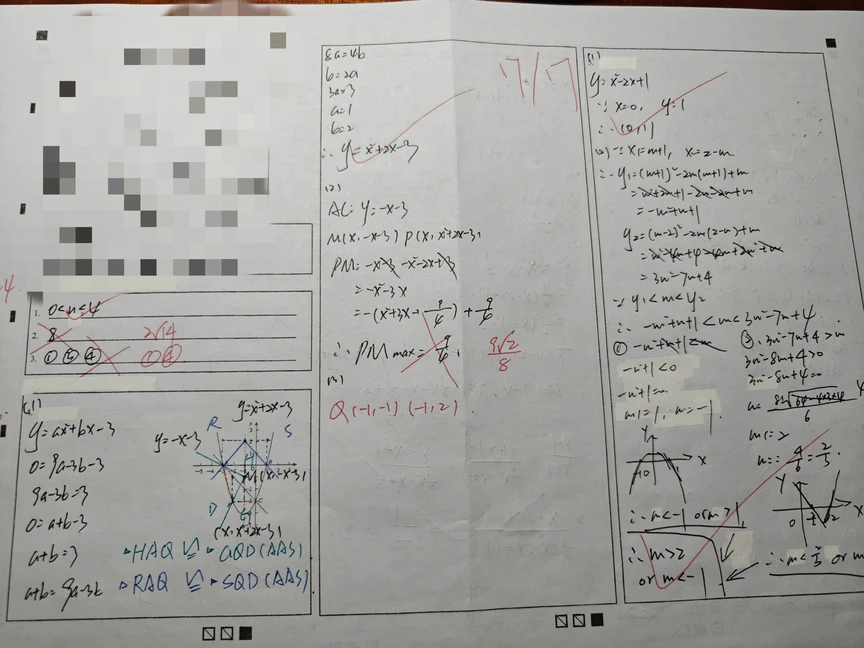 1. 0<m<4
2. 8
2√14
3. ①③④
①④
y=ax²+bx-3
0=9a-3b-3
9a-3b=3
0=a+b-3
a+b=3
y=x²+2x-3
y=-x-3
R
S
(x,x²+2x-3)
▲HAQ ≌ ▲GQD(AAS)
▲RAQ ≌ ▲SQD(AAS)
8a=4b
b=2a
3a=3
a=1
b=2
∴ y=x²+2x-3
17/17
(2)
AC: y=-x-3
M(x,-x-3) P(x,x²+2x-3)
PM=-x-3-x²-2x+3
=-x²-3x
=-(x²+3x+9/4)+9/4
∴ PMmax=9/4.
9√2/8
(3)
Q(-1,-1) (-1,2)
(1)
y=x²-2x+1
∵ x=0, y=1
∴ (0,1)
(2) ∵ x₁=m+1, x₂=2-m.
∴ y₁=(m+1)²-2m(m+1)+m
=-m²+m+1
y₂=(m-2)²-2m(2-m)+m
=3m²-7m+4
∵ y₁<m<y₂
∴ -m²+m+1<m<3m²-7m+4
① -m²+m+1<m
② 3m²-7m+4>m
-m²+1<0
3m²-8m+4>0
-m²+1=0
3m²-8m+4=0
m₁=1, m₂=-1
m₁=2
m₂=4/6=2/3
∴ m<-1 or m>1
∴ m>2
or m<-1
∴ m<2/3 or m